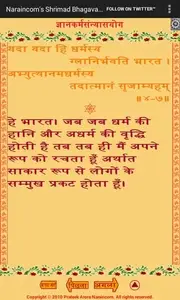 Naraincom's Shrimad Bhagava..
FOLLOW ON TWITTER"
ज्ञानकर्मसंन्यासयोग
यदा यदा हि धर्मस्य
ग्लानिर्भवति भारत ।
अभ्युत्थानमधर्मस्य
तदात्मानं सृजाम्यहम्
॥४-७॥
हे भारत। जब जब धर्म की
हानि और अधर्म की वृद्धि
होती है तब तब ही मैं अपने
रूप को रचता हूँ अर्थात
साकार रूप से लोगों के
सम्मुख प्रकट होता हूँ।
पिछला
अगला
Copyright © 2010 Prateek Arora Naraincom. All Rights Reserved.